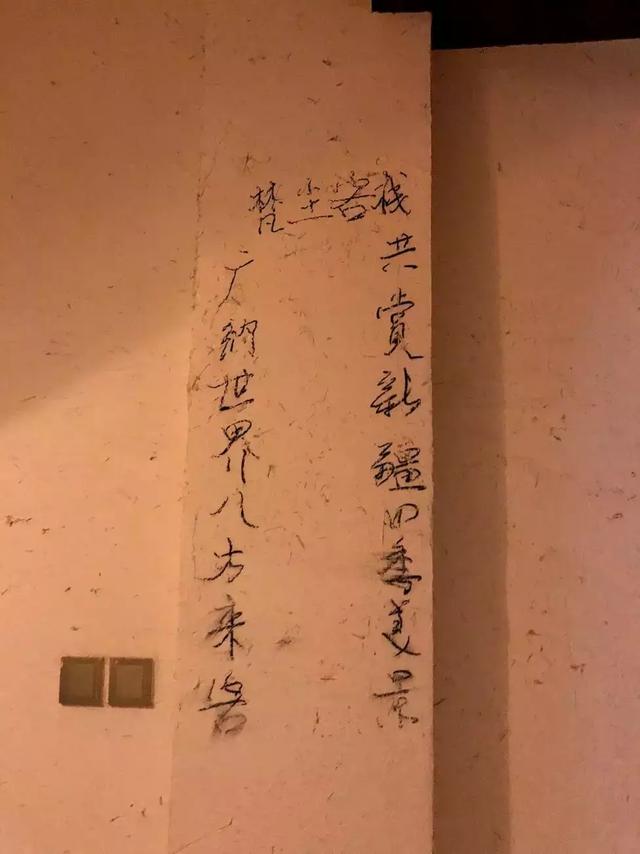 梵尘客栈
共赏新疆四季美景
广纳世界八方来客